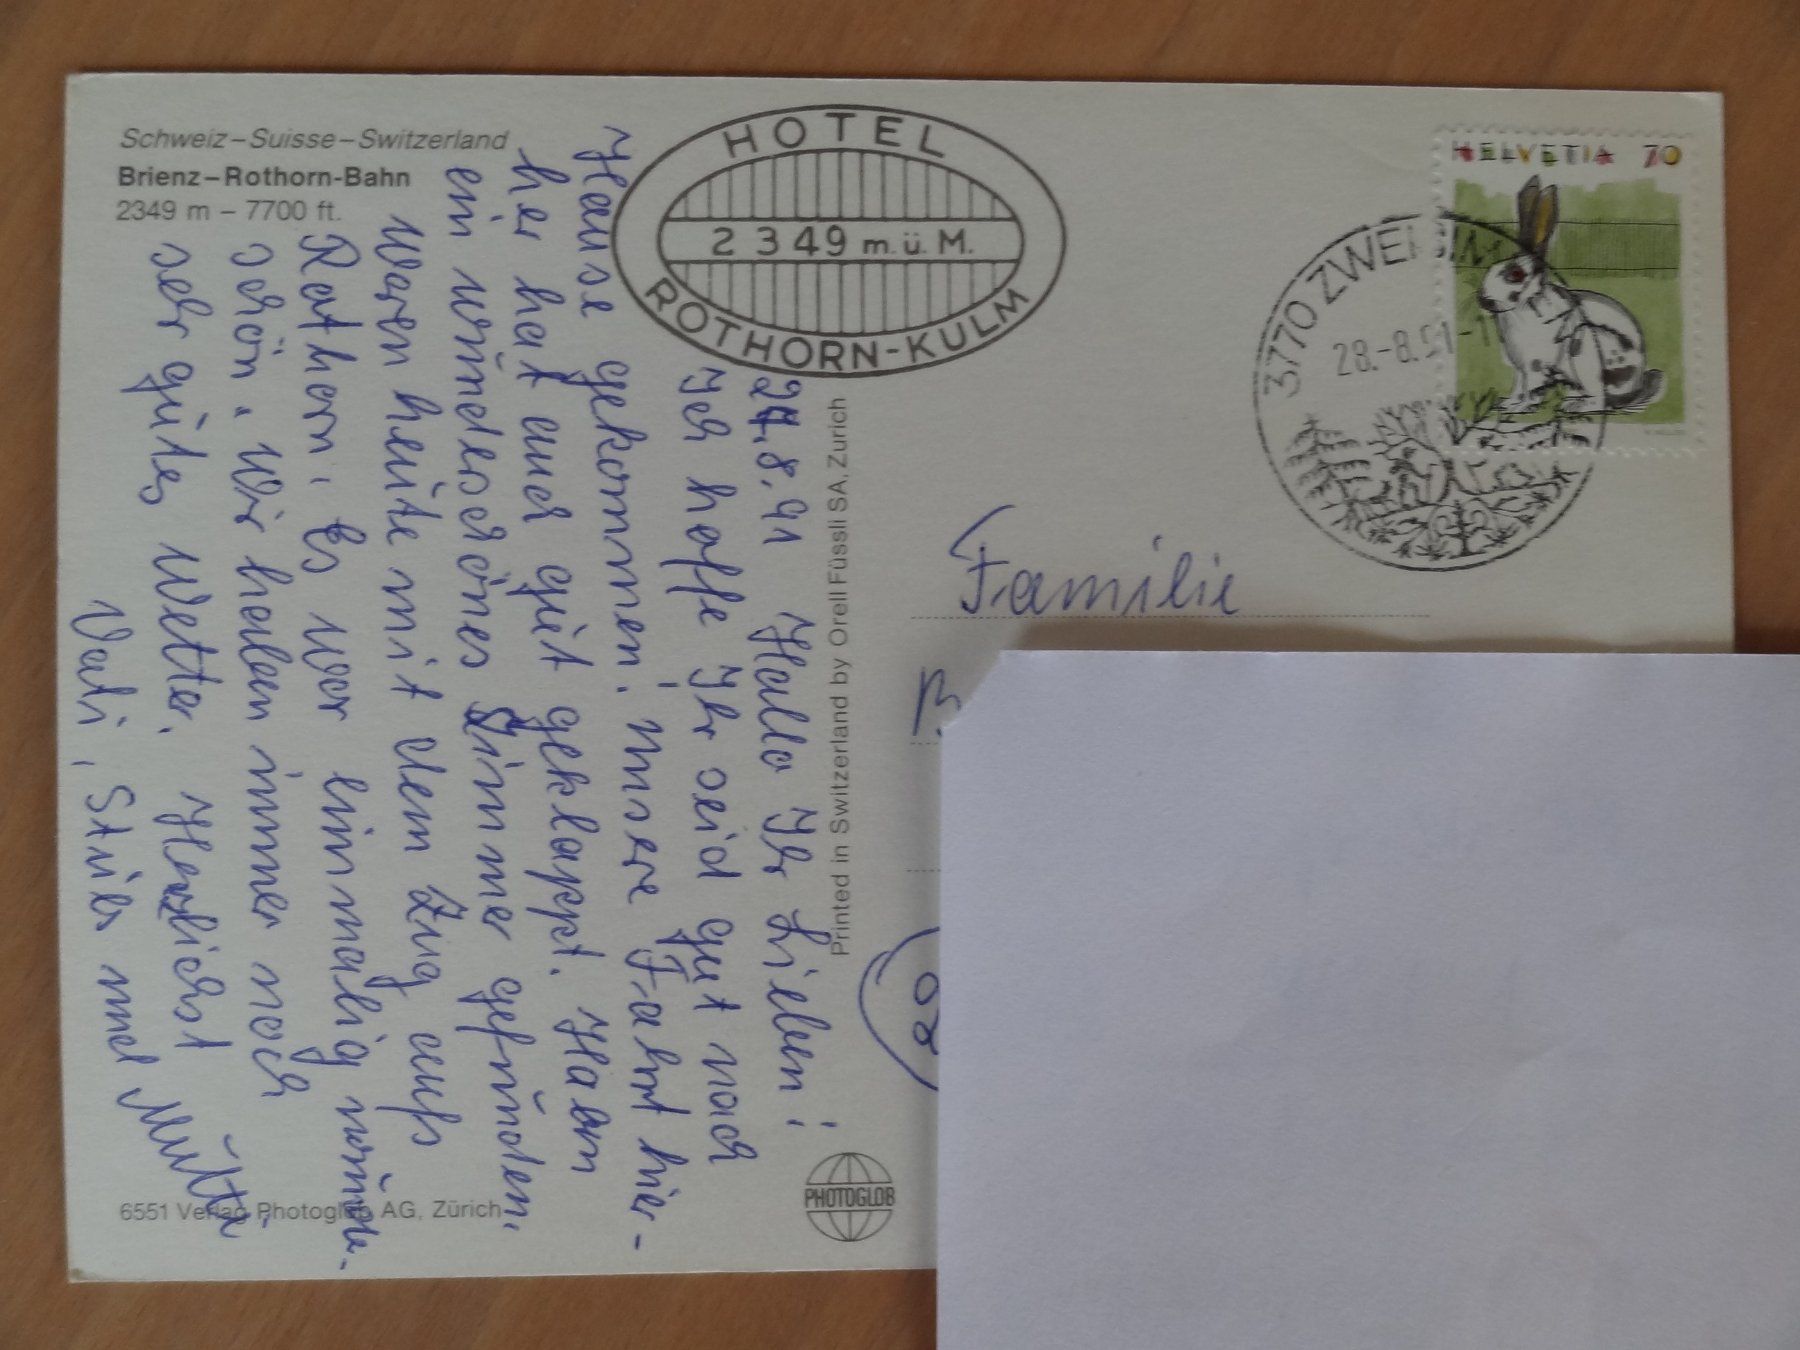 Schweiz – Suisse – Switzerland
Brienz – Rothorn-Bahn
2349 m – 7700 ft.
HOTEL
2349 m. ü. M.
ROTHORN-KULM
HELVETIA 70
3770 ZWEISIM
28.-8.91-1
27.8.91 Hallo Ihr Lieben!
Ich hoffe Ihr seid gut nach
Hause gekommen. unsere Fahrt hier-
her hat auch gut geklappt. Haben
ein wunderschönes Zimmer gefunden.
Waren heute mit dem Zug aufs
Rothorn. Es war einmalig wunder-
schön. Wir haben immer noch
sehr gutes Wetter. Herzlichst
Vati, und Mutti
Printed in Switzerland by Orell Füssli SA, Zurich
Familie
B
6551 Verlag Photoglob AG, Zürich
PHOTOGLOB